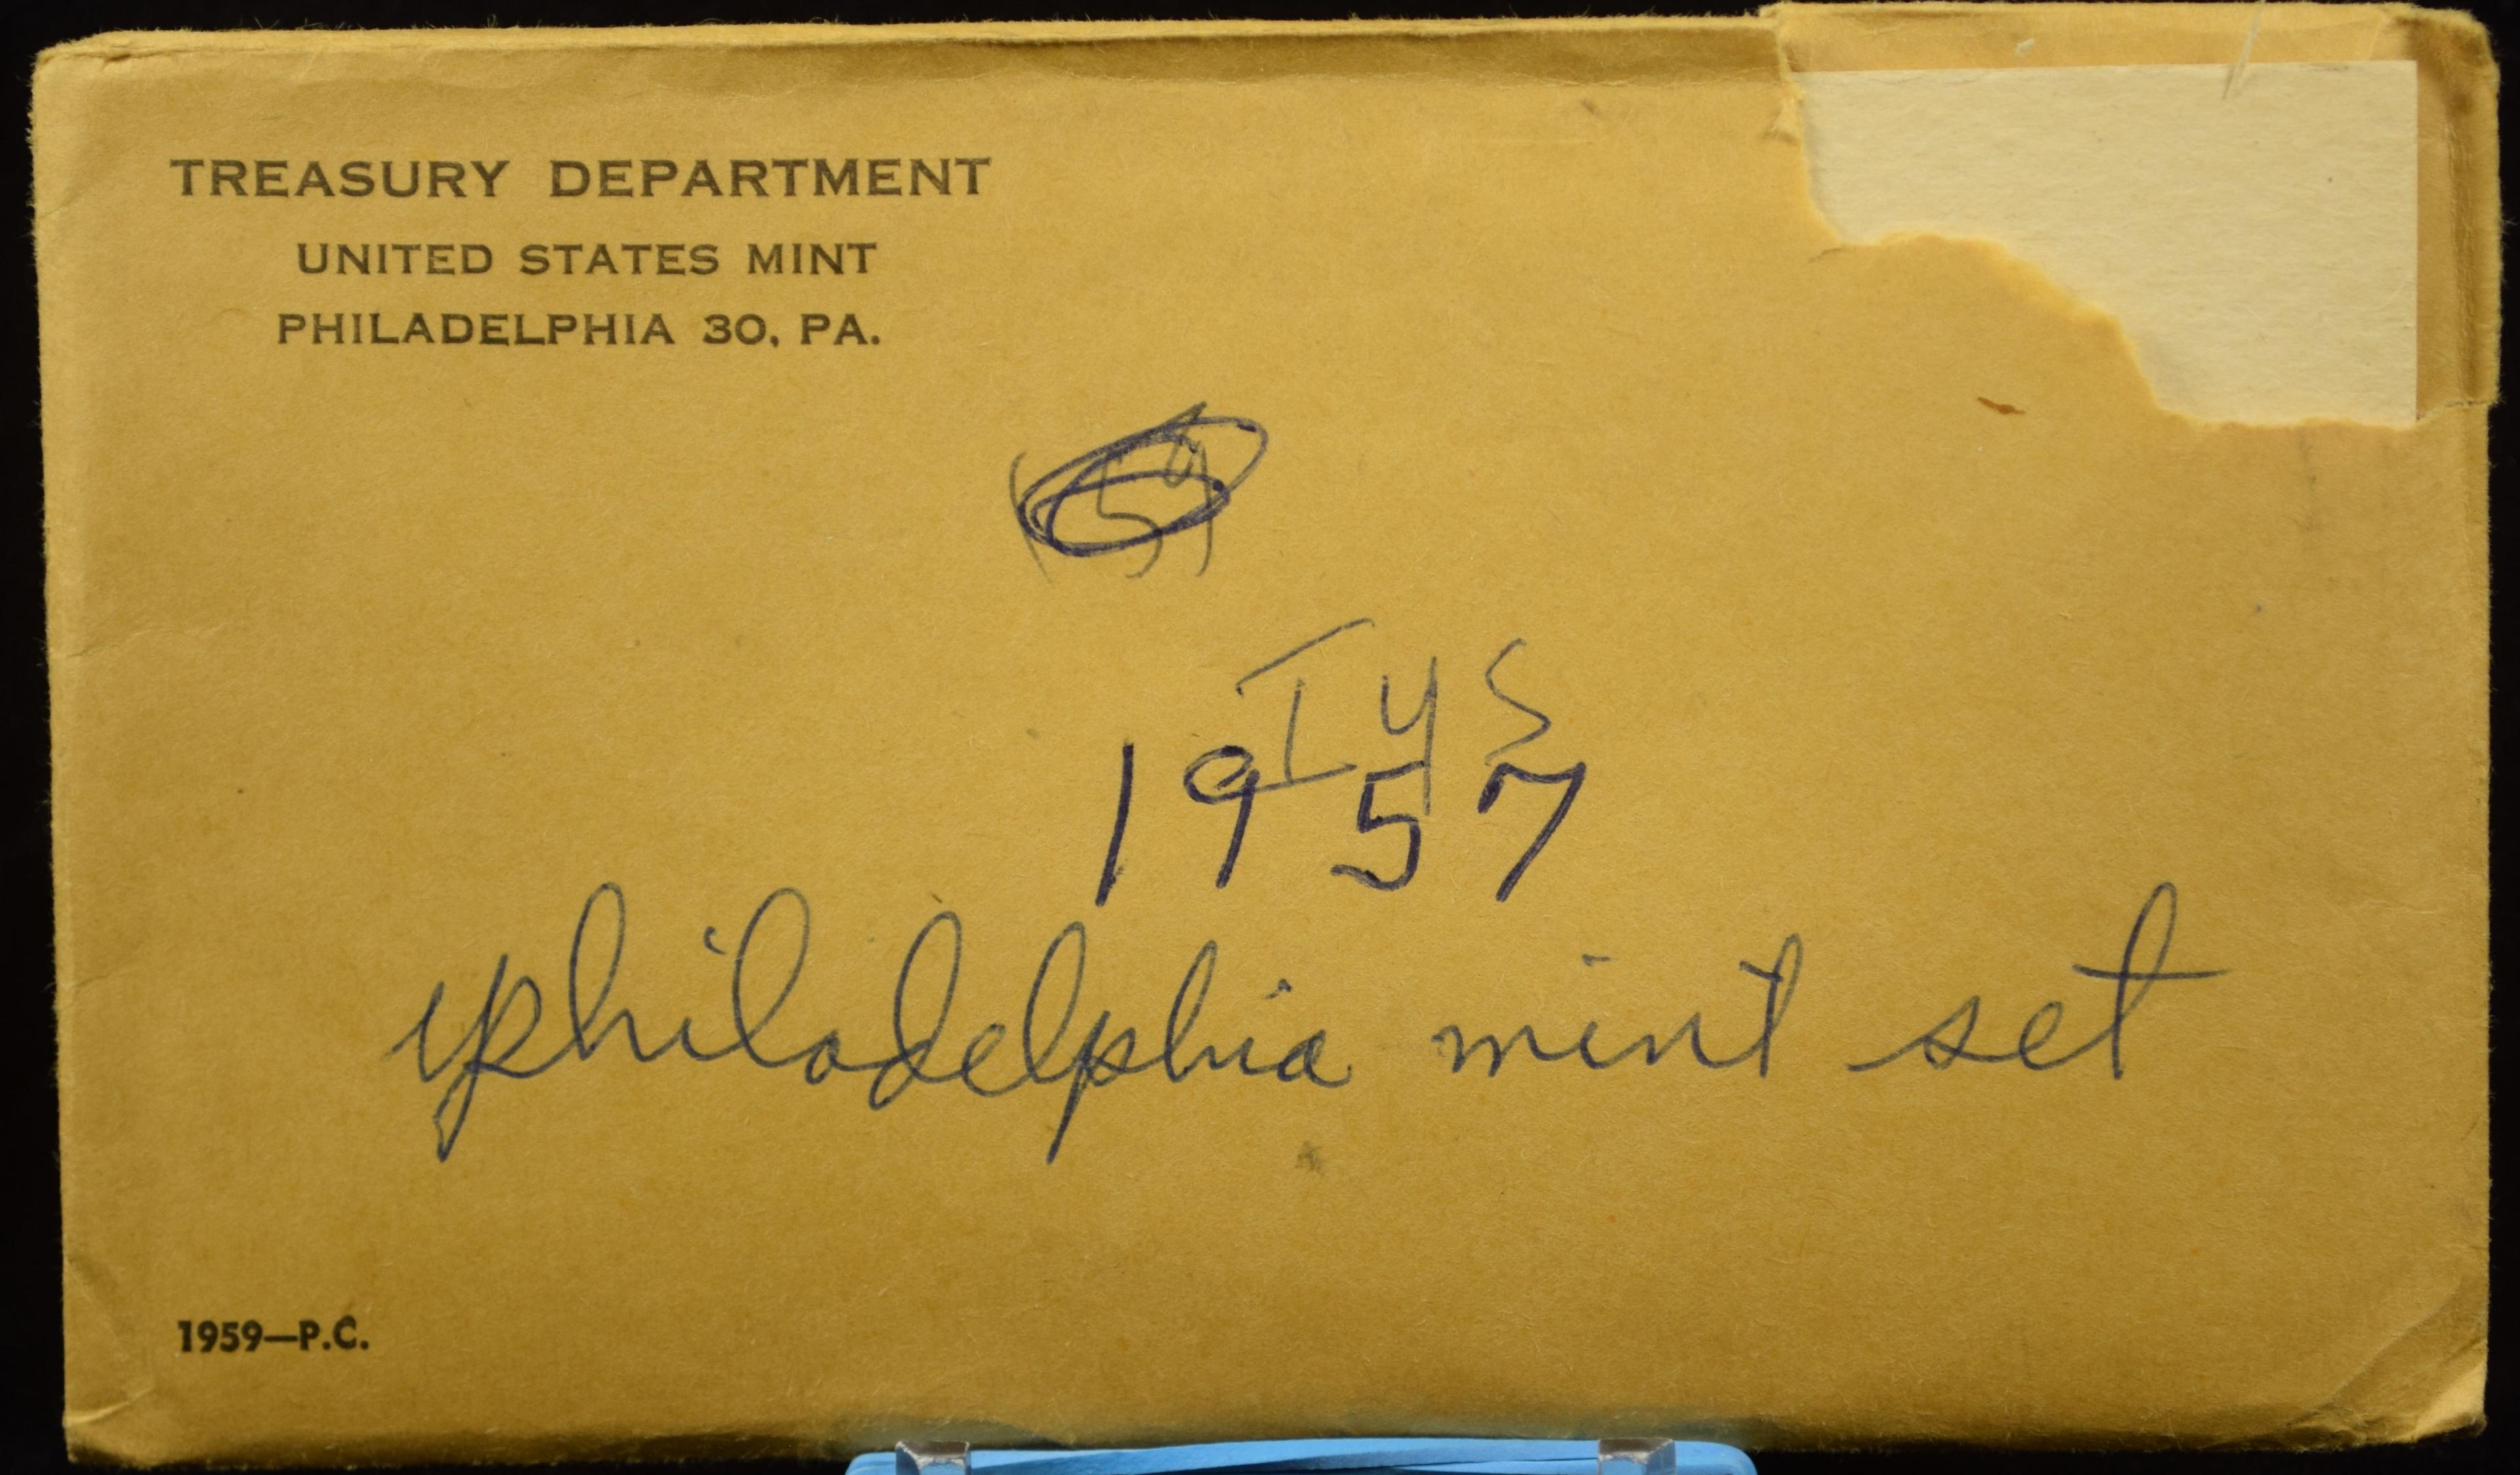 TREASURY DEPARTMENT
UNITED STATES MINT
PHILADELPHIA 30, PA.
1957
philadelphia mint set
1959—P.C.